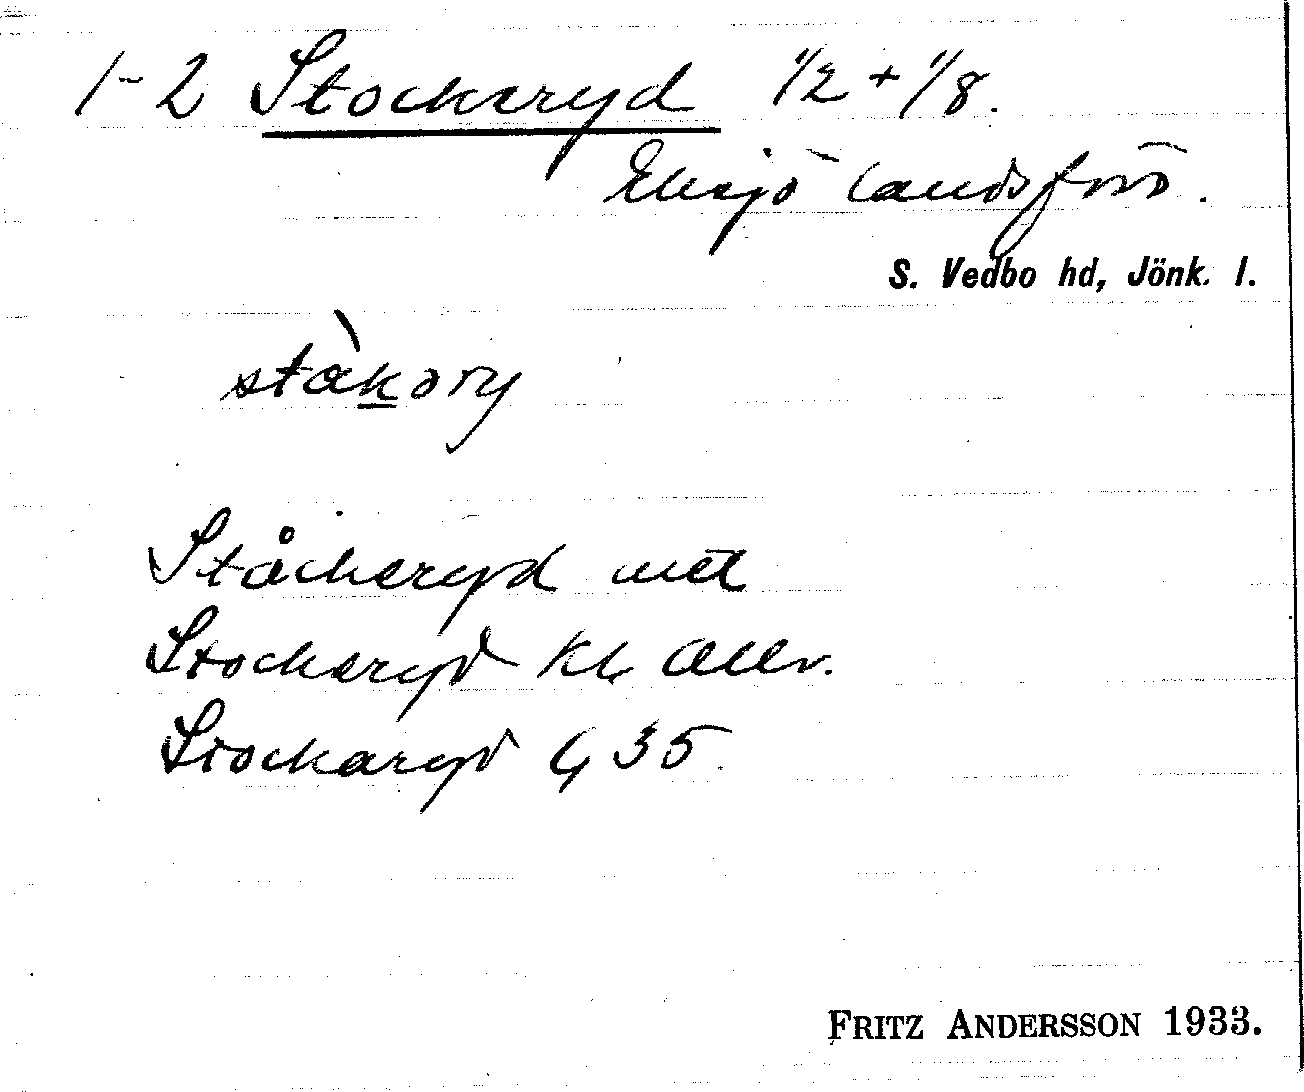 1-2 Stockeryd 1/2 + 1/8.
Eksjö landsförs.
S. Vedbo hd, Jönk. l.
stàkəry
Ståckeryd
Stockeryd
Stockaryd G 35.
FRITZ ANDERSSON 1933.